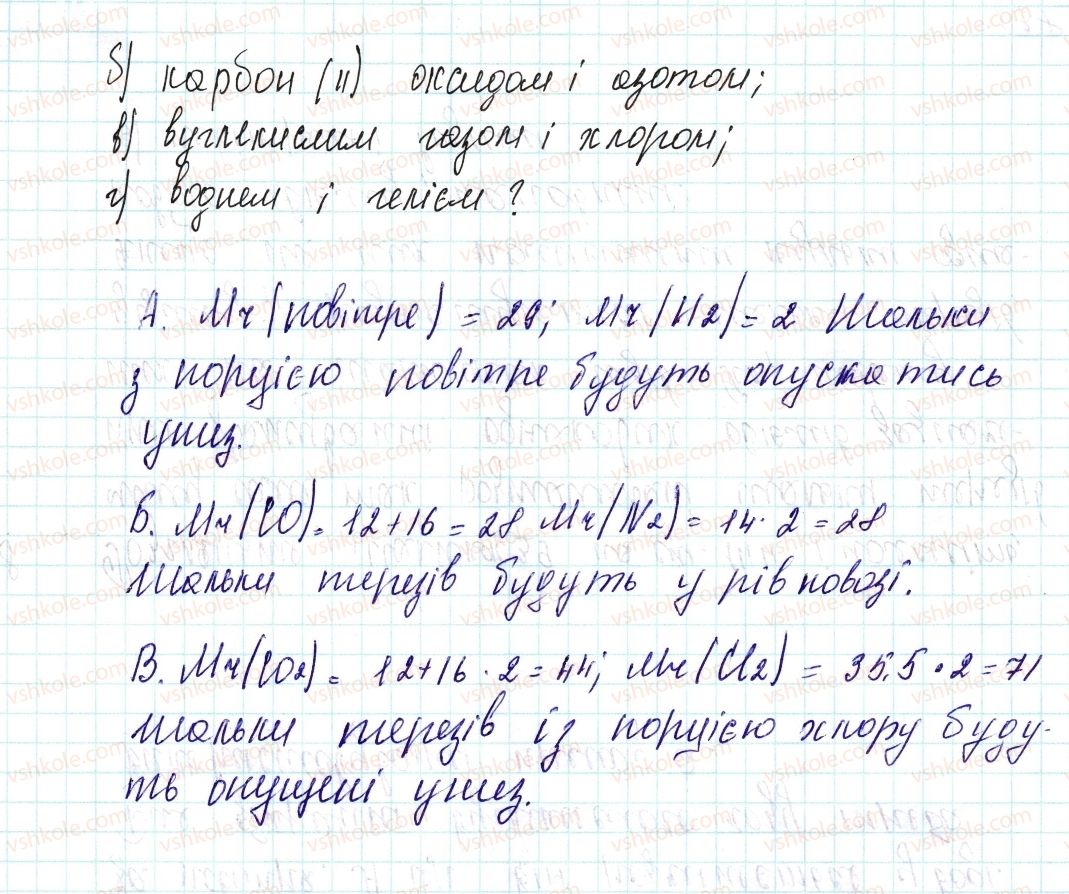 б) карбон (II) оксидом і азотом;
в) вуглекислим газом і хлором;
г) воднем і гелієм?
А. Mr(повітре) = 29; Mr(H2) = 2 Шальки
з порцією повітре будуть опускатись
униз.
Б. Mr(CO) = 12+16 = 28 Mr(N2) = 14 · 2 = 28
Шальки терезів будуть у рівновазі.
В. Mr(CO2) = 12+16 · 2 = 44; Mr(Cl2) = 35,5 · 2 = 71
Шальки терезів із порцією хлору буду-
ть опущені униз.